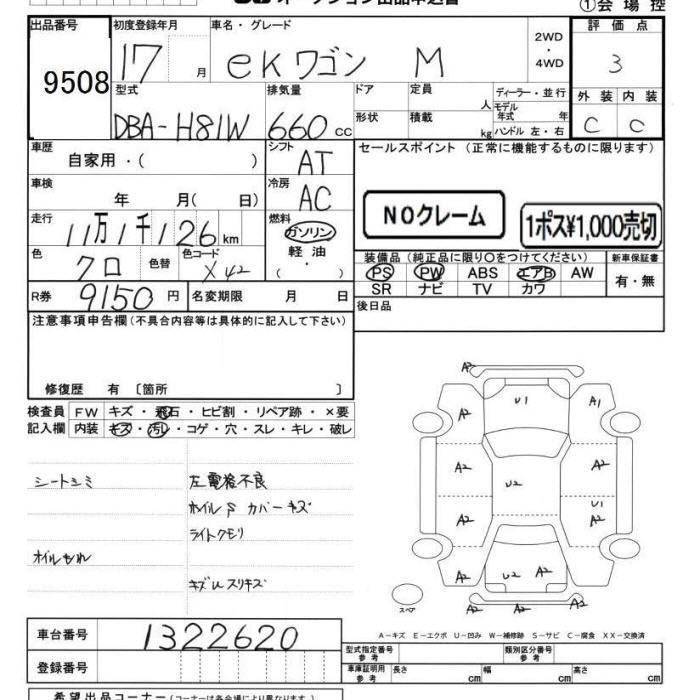 オークション出品申込書
①会場控
出品番号
9508
初度登録年月
17 月
車名・グレード
eKワゴン M
2WD
・
4WD
評価点
3
型式
DBA-H81W
排気量
660 cc
ドア
形状
定員
人
積載
kg
ディーラー・並行
モデル
年式 年
ハンドル 左・右
外装 内装
C C
車歴
自家用・( )
シフト
AT
セールスポイント (正常に機能するものに限ります)
車検
年 月( 日)
冷房
AC
NOクレーム
1ポス¥1,000売切
走行
11万1千126km
燃料
ガソリン
軽油
・
( )
色
クロ
色替
色コード
X42
装備品(純正品に限り○をつけてください)
PS PW ABS エアB AW
SR ナビ TV カワ
新車保証書
有・無
R券
9150円
名変期限 月 日
後日品
注意事項申告欄(不具合内容等は具体的に記入して下さい)
修復歴 有 〔箇所 〕
検査員
記入欄
FW キズ・飛石・ヒビ割・リペア跡・×要
内装 キズ・汚レ・コゲ・穴・スレ・キレ・破レ
シートシミ
オイルもれ
左電格不良
ホイルS カバーキズ
ライトクモリ
キズUスリキズ
A2
A2 U1 A1
A2 U2 A2
A2 U1 A2
A2 U2 A2 A2
A2
スペア
A-キズ E-エクボ U-凹み W-補修跡 S-サビ C-腐食 XX-交換済
車台番号
1322620
登録番号
型式指定番号
参考
類別区分番号
参考
車庫証明用
参考
長さ cm
幅 cm
高さ cm
希望出品コーナー(コーナーは各会場により異なります)